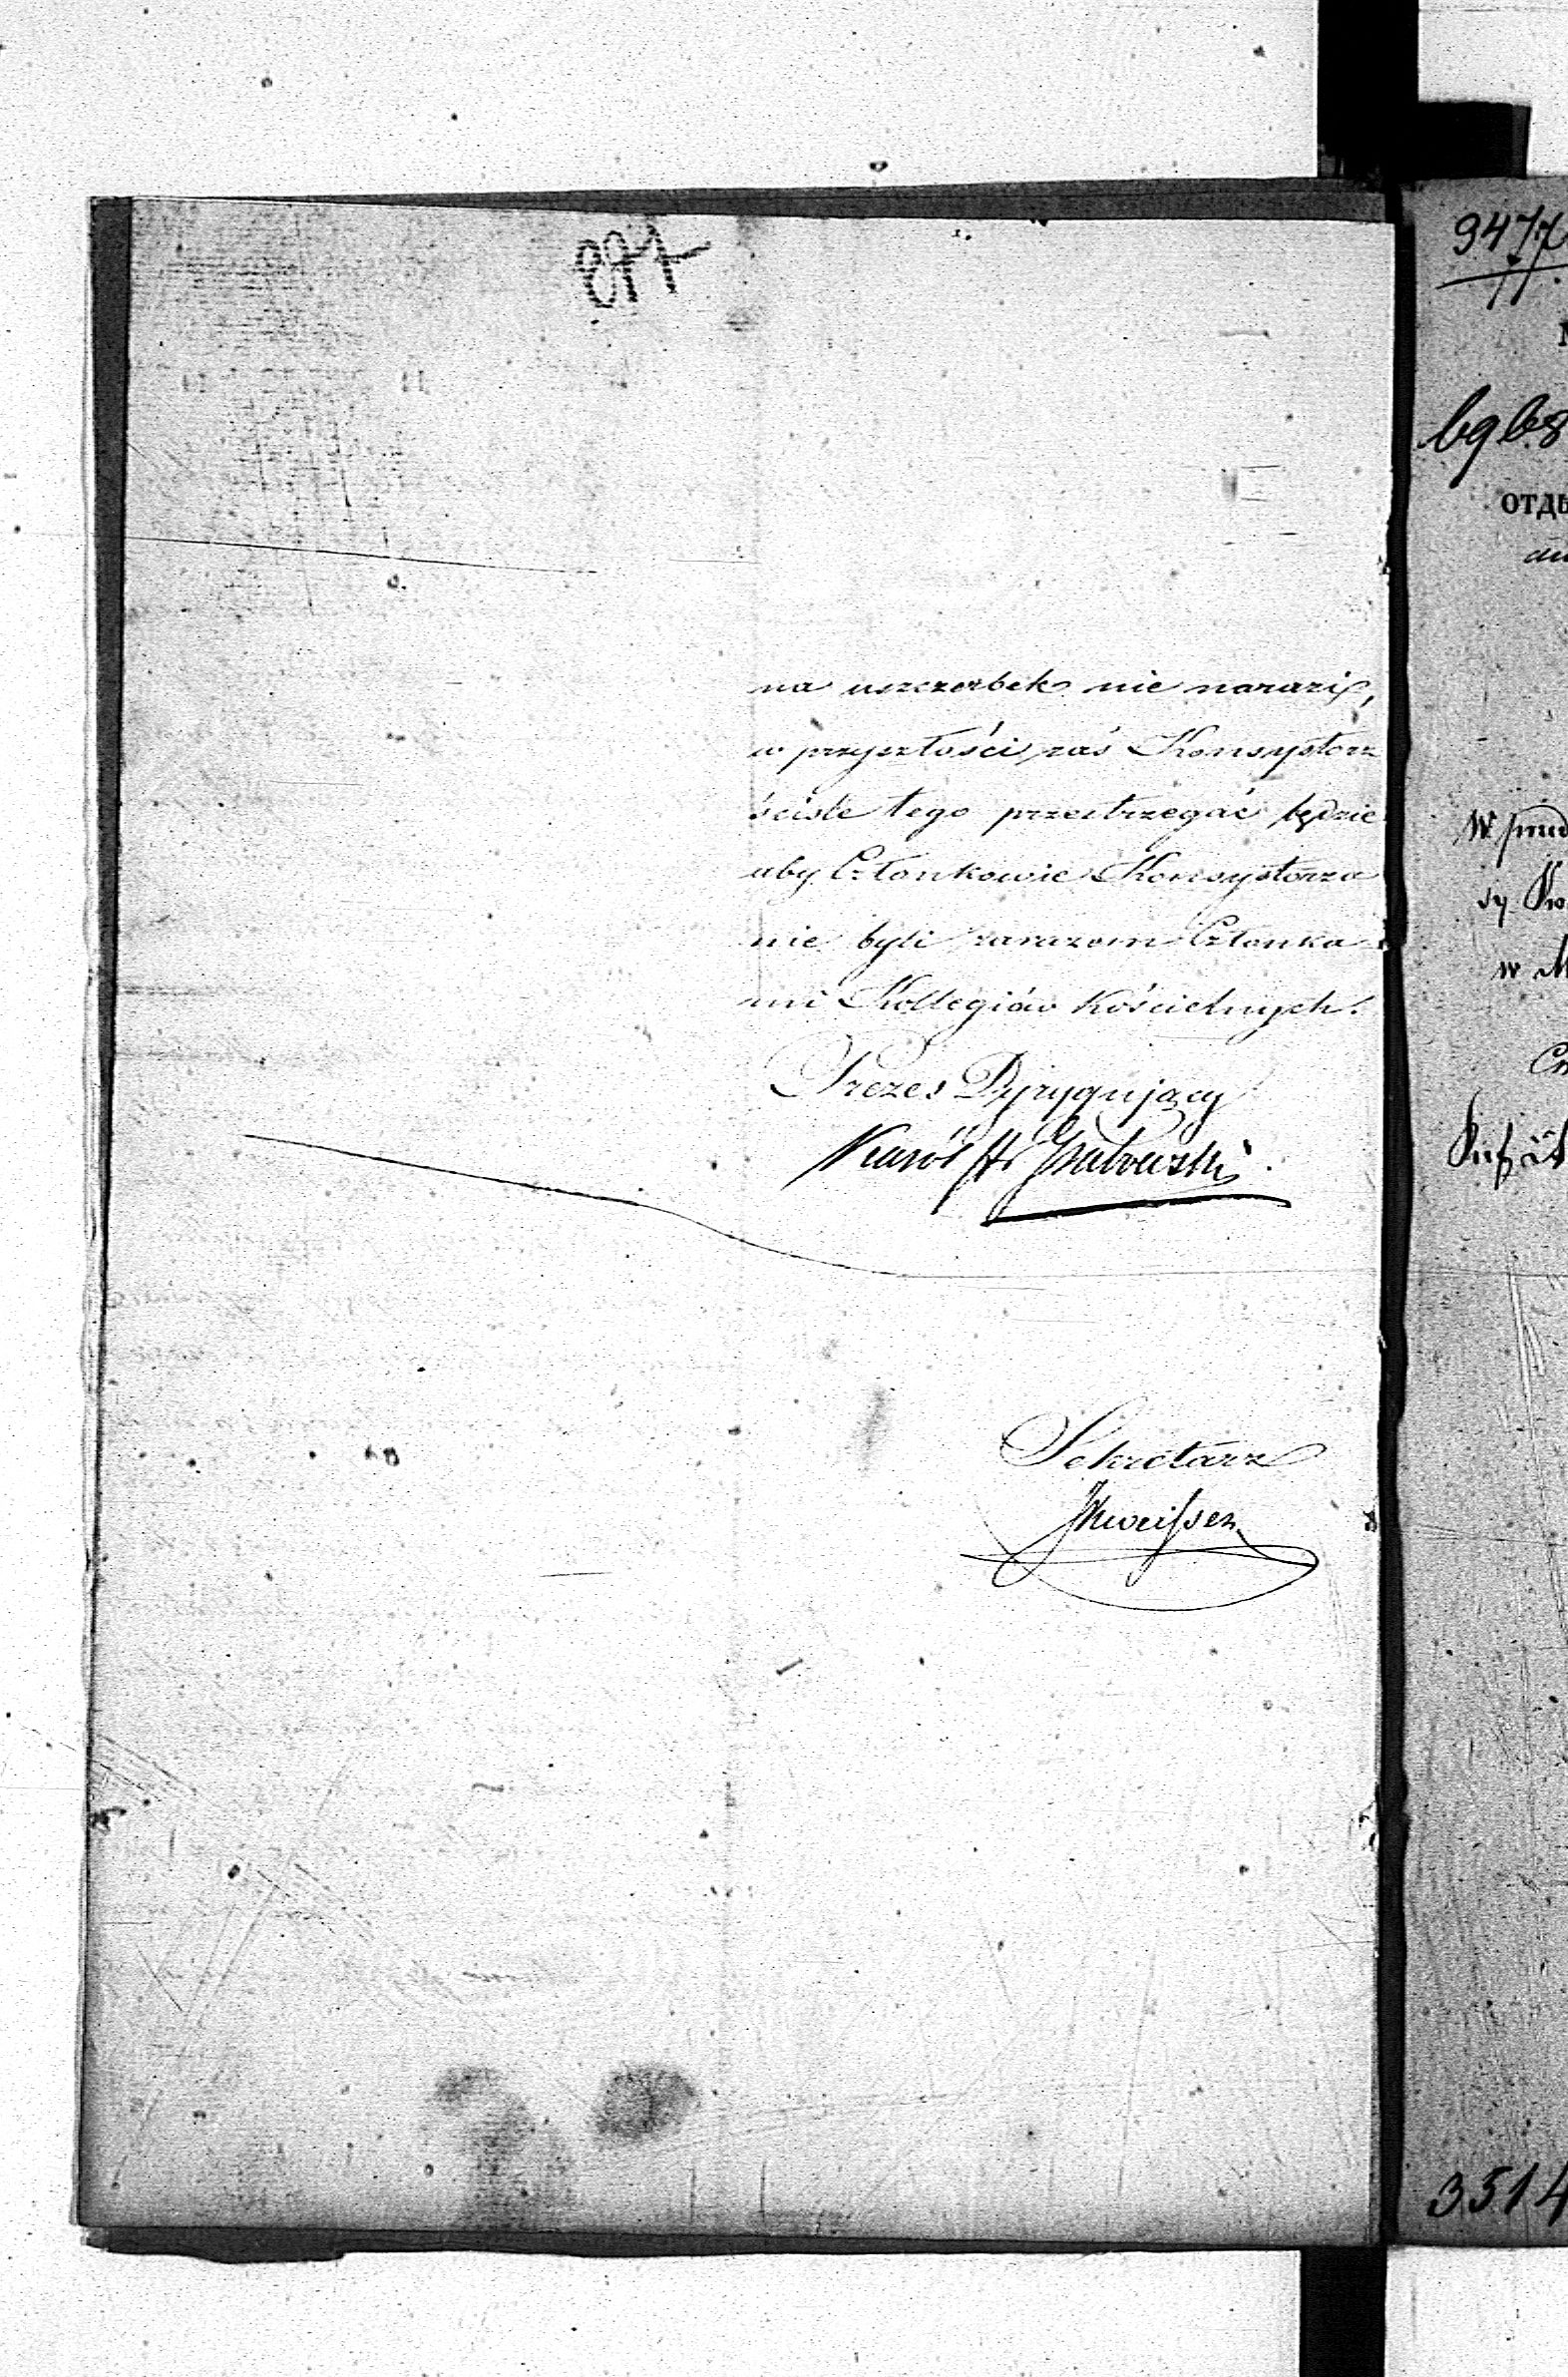 na uszczerbek nie narazi,
w przyszłości zaś Konsystorz
ściśle tego przestrzegać będzie
aby Członkowie Konsystorza
nie byli zarazem Członka
mi Kollegiów Kościelnych.
Prezes Dyrygujący
Karól
Sekretarz
9477
ОТДѢ
w M
3514